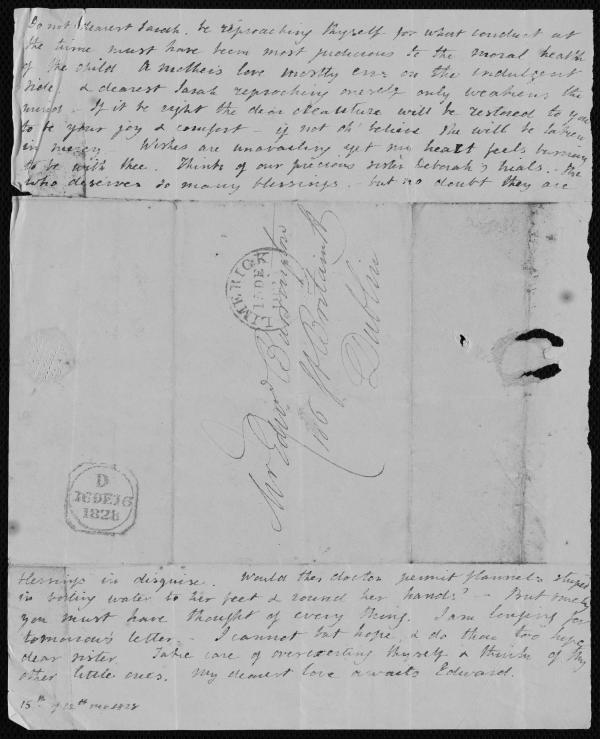 Do not dearest Sarah, be reproaching thyself for what conduct at
the time must have been most judicious to the moral health
of the child A mothers love mostly errs on the indulgent
side, & dearest Sarah reproaching oneself only weakens the
mind - If it be right the dear creature will be restored to you
to be your joy & comfort - if not oh believe she will be taken
in mercy Wishes are unavailing yet my heart feels
to be with thee. Think of our precious sister Deborah's trials. She
who deserves so many blessings - but no doubt they are
LIMERICK
15 DE
Mr Edwd Barrington
Gt Britain St
Dublin
D
16 DE 16
1828
blessings in disguise. Would the doctor permit flannels stuped
in boiling water to her feet & round her hands? - But surely
you must have thought of every thing. I am longing for
tomorrow's letter - I cannot but hope, & do thou too hope
dear sister. Take care of overexerting thyself & think of thy
other little ones. My dearest love awaits Edward.
15th of 12th mo 1828